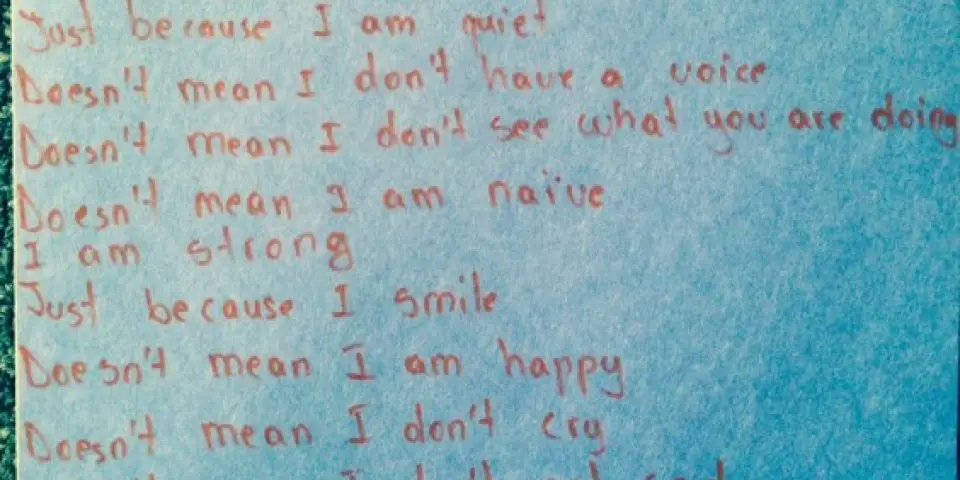 Just because I am quiet
Doesn't mean I don't have a voice
Doesn't mean I don't see what you are doing
Doesn't mean I am naive
I am strong
Just because I smile
Doesn't mean I am happy
Doesn't mean I don't cry